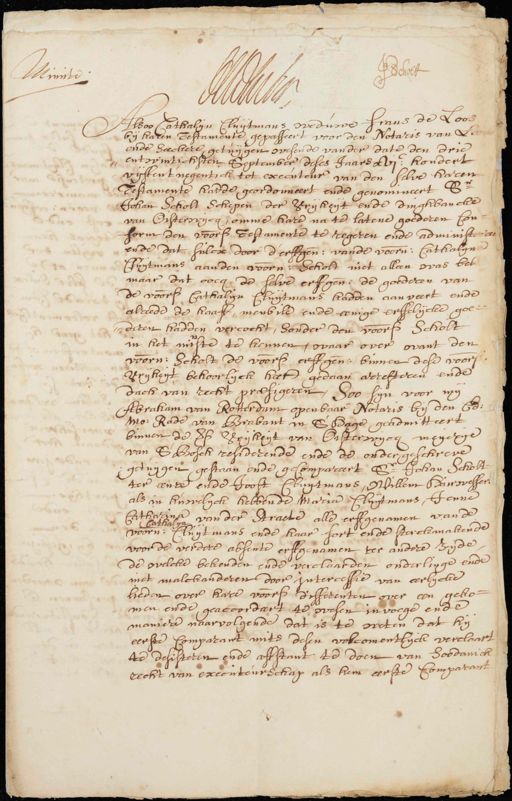 Minute.
Scholt
Alsoo Cathalijn Cluijtmans weduwe Frans de Loos
bij haren Testamente gepasseert voor den Notaris van
ende sekere getuijgen wesende vander date den drie
entwintichsten September deses Jaers xvj: hondert
vijffentnegentich tot executeur van den selve haren
Testamente hadde geordonneert ende genomineert Sr
Johan Scholt Schepen der Vrijheijt ende dingbancke
van Oisterwijck, omme hare na te latene goederen Con-
form den voors Testamente te regeren ende administreren
ende dat sulcx door d'erffgen: vande voorn: Cathalijn
Clijtmans aanden voorn: Scholt niet alleen was bet
maar dat oock de selve erffgen: de goederen van
de voors Cathalijn Cluijtmans hadden aanveert ende
alreede de haaff, meubele ende eenige erffelijcke goe-
deren hadden vercocht, sonder den voors Scholt
in het minste te kennen, waar over want den
voorn: Scholt de voors erffgen: binnen dese voors
Vrijheijt behoorlijck heeft gedaan arresteren ende
dach van recht presigeren Soo sijn voor mij
Abraham van Rotterdum openbaar Notaris bij den Ed:
Mo: Rade van Brabant in S'Hage geadmitteert
binnen de Vrijheijt van Oisterwijck meijerije
van S'Bosch residerende ende de ondergeschreve
getuijgen gestaan ende gecompareert Sr Johan Scholt
ter eenre ende Joost Cluijtmans, Willem
als in huwelijck hebbende Maria Cluijtmans, Jenne
Catharina vander Straete alle erffgenamen vande
Cathalijn
voorn: Cluijtmans ende haar fort ende sterckmakende
voor de verdere absente erffgenamen ter andere zijde
de welcke bekenden ende verclaarden onderlinge ende
met malckanderen door intercessie van eerlijcke
lieden over hare voors differenten over een geko-
men ende geaccordeert te wesen in voege ende
maniere naarvolgende dat is te weten dat hij
eerste Comparant mits desen volcomentlijck verclaart
te desisteren ende affstant te doen van soodanich
recht van executeurschap als hem eerste Comparant